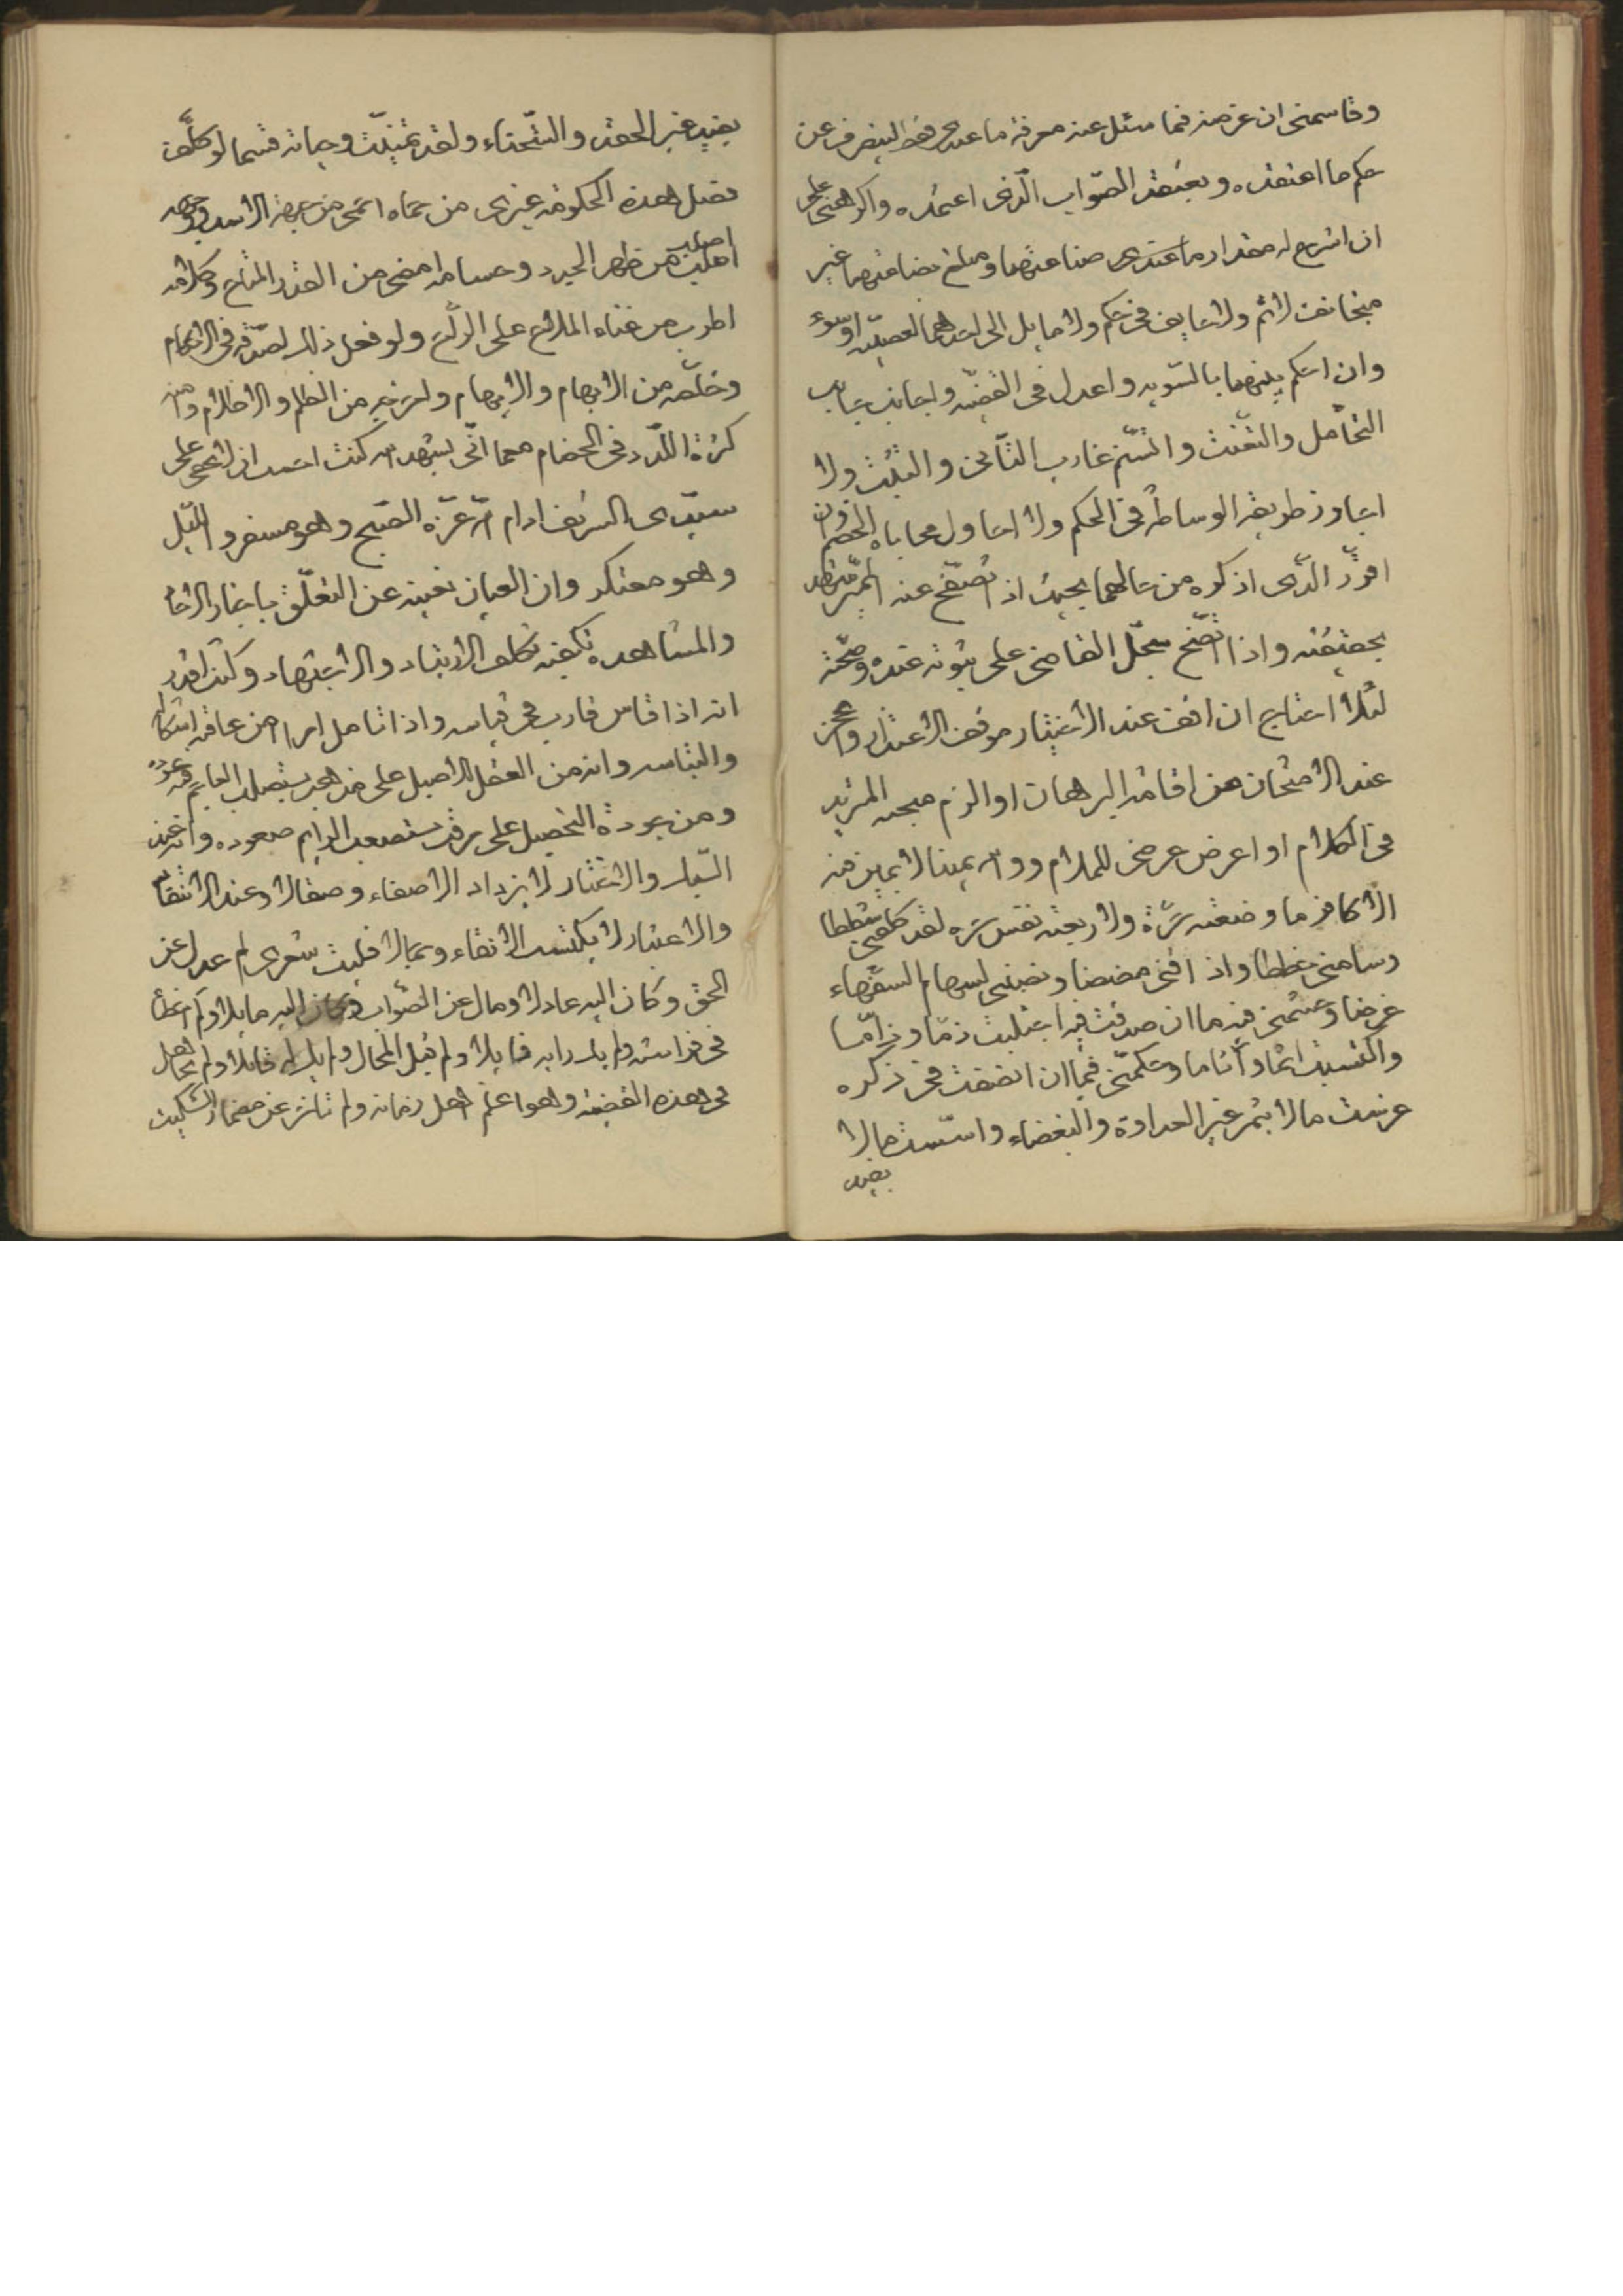 وقاسمنى ان غرضه فيما سئل عنه معرفة ما عندى فقط لينصرف عن
حكم ما اعتقده ويعتقد الصّواب الّذى اعتمده واكرهنى على
ان اشرح له مقدار ما عندى صناعتهما ومبلغ بضاعتهما غير
متجانف لاثم ولا حايف فى حكم ولا مايل الى احدهما لعصبيّة او سوء
وان احكم بينهما بالسّويه واعدل فى القضيّه واجانب جانب
التحامل والتعنّت واتسنّم غارب التأنى والتثبّت ولا
اجاوز طريقة الوساطة فى الحكم ولا احاول محاباه الخصم وان
اقرّر الّذى اذكره من حالهما بحيث اذا تصفّح عنه المميّز شهد
بحقيقته واذا تصفّح سجّل القاضى على ثبوته عنده وصحّته
لئلا احتاج ان اقف عند الاختبار موقف الاعتذار واعجز
عند الامتحان عن اقامة البرهان او الزم مهجه المزيد
فى الكلام او اعرض عرضى للملام ووالله يمينا لا يمين منه
الا كافر ما وضعته شرّة ولا ربعته نفس شره لقد كلفنى شططا
وسامنى غططا واذاقنى مضضا ونصبنى لسهام السّفهاء
غرضا وجشّمنى فيه ما ان صدقت فيه اجتلبت ذمّا وذامّا
واكتسبت اثما وأثاما وحكّمنى فيما ان انصفت فى ذكره
غرست ما لا يثمر غير العداوة والبغضاء واسّست ما لا
يفيد
يفيد غير الحقد والشّحناء ولقد تمنّيت وحياته قسما لو كلّف
فصل هذه الحكومة غيرى من حماه احمى من جبهة الاسد ووجهه
اصلب من ظهر الحيد وحسامه امضى من القدر المتاح وكلامه
اطرب من غناء الملاح على الرّاح ولو فعل ذلك لصدّقه فى الاتهام
وخلّصه من الابهام والايهام واخرجه من الظلم والاظلام وامنه
كرّة اللّدد فى الخصام مهما انّى يشهد الله كنت احسب ان لا يخفى على
سيّدى الشريف ادام الله عزّه الصّبح وهو مسفر والليّل
وهو معتكر وان العيان يغنيه عن التعلّق باخبار الاحاد
والمشاهده تكفيه تكلف الارتياد والاجتهاد وكنت اقدر
انه اذا قاس قارب فى قياسه واذا تامل امرا امن عاقبة اشكاله
والتباسه وانه من العقل الاصيل على مذهب يستصلب العاجم عوده
ومن جودة التحصيل على مرقب يستصعب الرايم صعوده وانه عند
السّبك والاختبار لا يزداد الا صفاء وصقالا وعند الانتقاد
والاعتبار لا يكتسب الا نقاء وجمالا فليت شعرى لم عدل عن
الحق وكان اليه عادلا ومال عن الصّواب وكان اليه مايلا ولم اخطأ
فى فراسته ولم يك رايه فايلا ولم قبل المحال ولم يك له قابلا ولم تجاهل
فى هذه القضيّه وهو اعلم اهل زمانه ولم تاخّر عن مضمار السّكيت